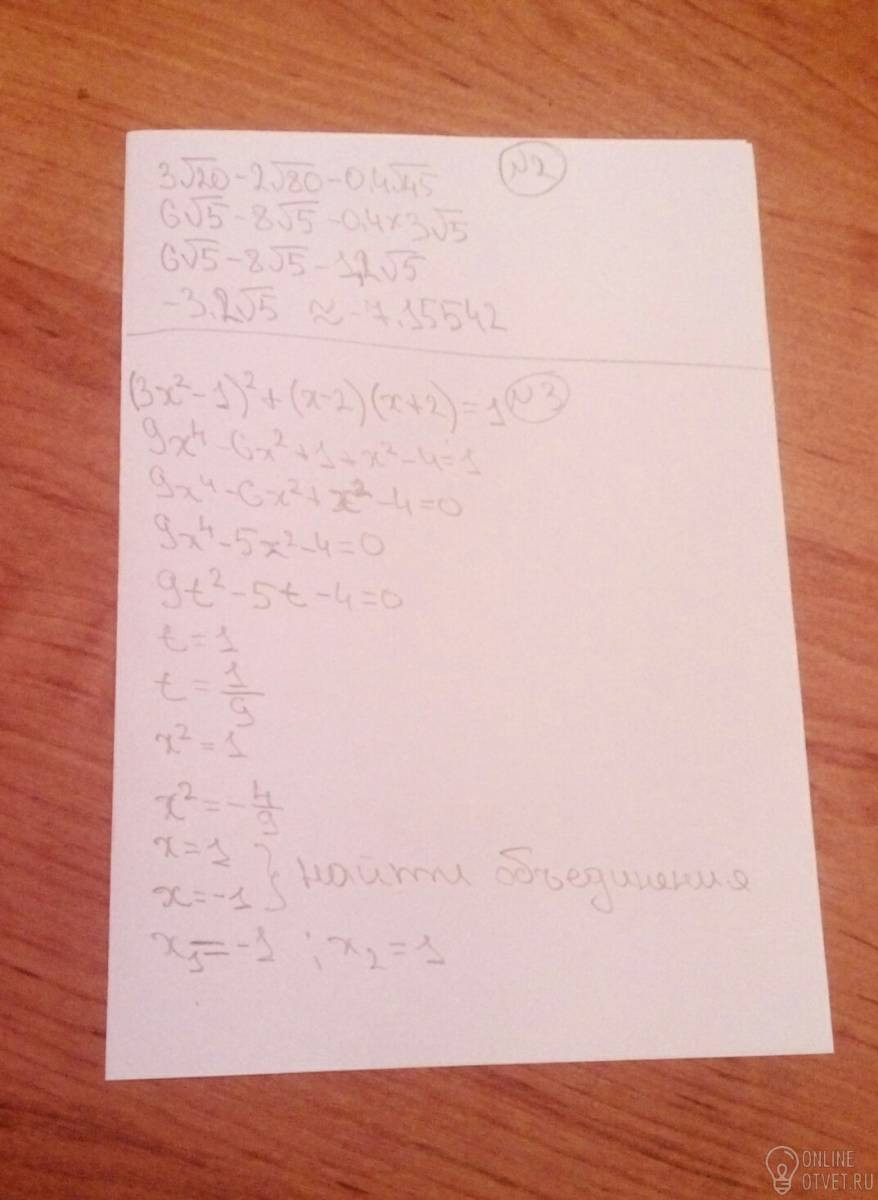 3√20-2√80-0.4√45 №2
6√5-8√5-0.4×3√5
6√5-8√5-1,2√5
-3.2√5 ≈-7.15542
(3x²-1)²+(x-2)(x+2)=1 №3
9x⁴-6x²+1+x²-4=1
9x⁴-6x²+x²-4=0
9x⁴-5x²-4=0
9t²-5t-4=0
t=1
t=1/9
x²=1
x²=-4/9
x=1
x=-1 } найти объединения
x₁=-1 ; x₂=1
ONLINE
OTVET.RU